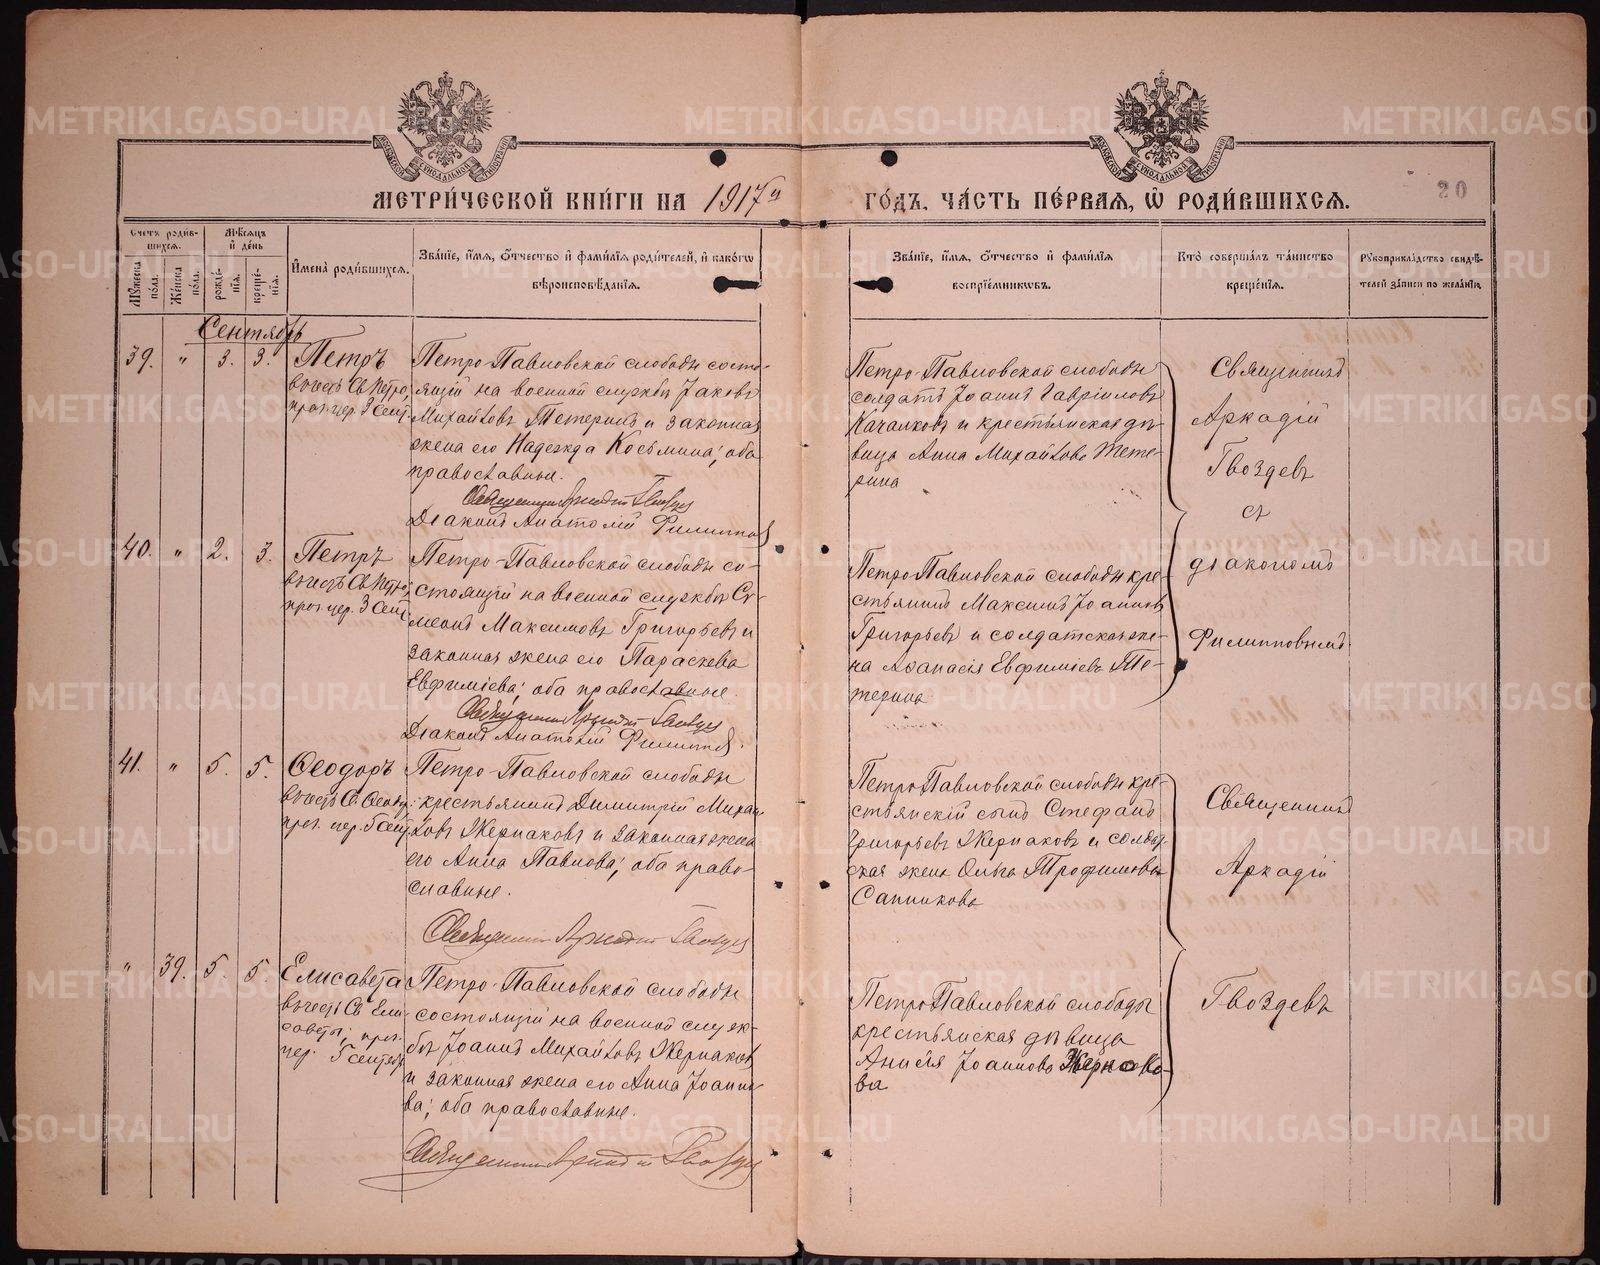 МЕТРИЧЕСКОЙ КНИГИ НА 1917й
ГОДЪ, ЧАСТЬ ПЕРВАЯ, Ѡ РОДИВШИХСЯ.
20
Счетъ родив-
шихся.
Мѣсяцъ
и день
Мужеска пола.
Женска пола.
рожде-
нія.
креще-
нія.
Имена родившихся.
Званіе, имя, отчество и фамилія родителей, и какогѡ
вѣроисповѣданія.
Званіе, имя, отчество и фамилія
воспріемникѡвъ.
Кто совершалъ таинство
крещенія.
Рукоприкладство свидѣ-
телей записи по желанію.
Сентябрь
39. " 3. 3. Петръ
въ честь Св. Петра,
праз. чер. 3 Сент.
Петро-Павловской слободы состо-
ящій на военной службѣ Іаковъ
Михайловъ Тетеринъ и законная
жена его Надежда Косьмина; оба
православные.
Священникъ Аркадій Гвоздевъ
Діаконъ Анатолій Филипповъ
Петро-Павловской слободы
солдатъ Іоаннъ Гавріиловъ
Качалковъ и крестьянская дѣ-
вица Анна Михайлова Тете-
рина
Священникъ
Аркадій
Гвоздевъ
съ
діакономъ
Филипповымъ.
40. " 2. 3. Петръ
въ честь Св. Петра,
праз. чер. 3 Сент.
Петро-Павловской слободы со-
стоящій на военной службѣ Си-
меонъ Максимовъ Григорьевъ и
законная жена его Параскева
Евфиміева; оба православные.
Священникъ Аркадій Гвоздевъ
Діаконъ Анатолій Филипповъ.
Петро-Павловской слободы кре-
стьянинъ Максимъ Іоанновъ
Григорьевъ и солдатская же-
на Аѳанасія Евфиміева Те-
терина
41. " 5. 5. Ѳеодоръ
Петро-Павловской слободы
крестьянинъ Димитрій Михай-
ловъ Жернаковъ и законная жена
его Анна Павлова; оба право-
славные.
Священникъ Аркадій Гвоздевъ
Петро-Павловской слободы кре-
стьянскій сынъ Стефанъ
Григорьевъ Жернаковъ и солдат-
ская жена Ольга Трофимова
Санникова
Священникъ
Аркадій
Гвоздевъ
" 39. 5. 5. Елисавета
въ честь Св. Ели-
саветы; праз.
чер. 5 сентябр
Петро-Павловской слободы
состоящій на военной служ-
бѣ Іоаннъ Михайловъ Жернаковъ
и законная жена его Анна Іоанно-
ва; оба православные.
Священникъ Аркадій Гвоздевъ
Петро-Павловской слободы
крестьянская дѣвица
Анисія Іоаннова Жернако-
ва
METRIKI.GASO-URAL.RU